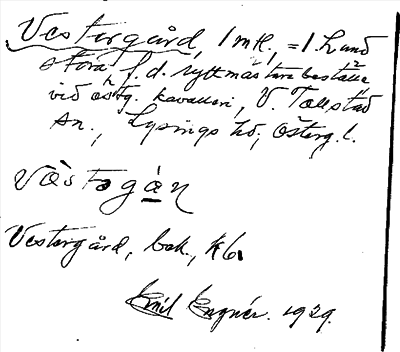 Vestergård, 1 mtl., = 1. Lund
stora f. d. ryttmästareboställe
vid östg. kavalleri, V. Tollstad
sn., Lysings hd, Österg. l.
Vestergård, bok.,
Emil Engnér. 1929.